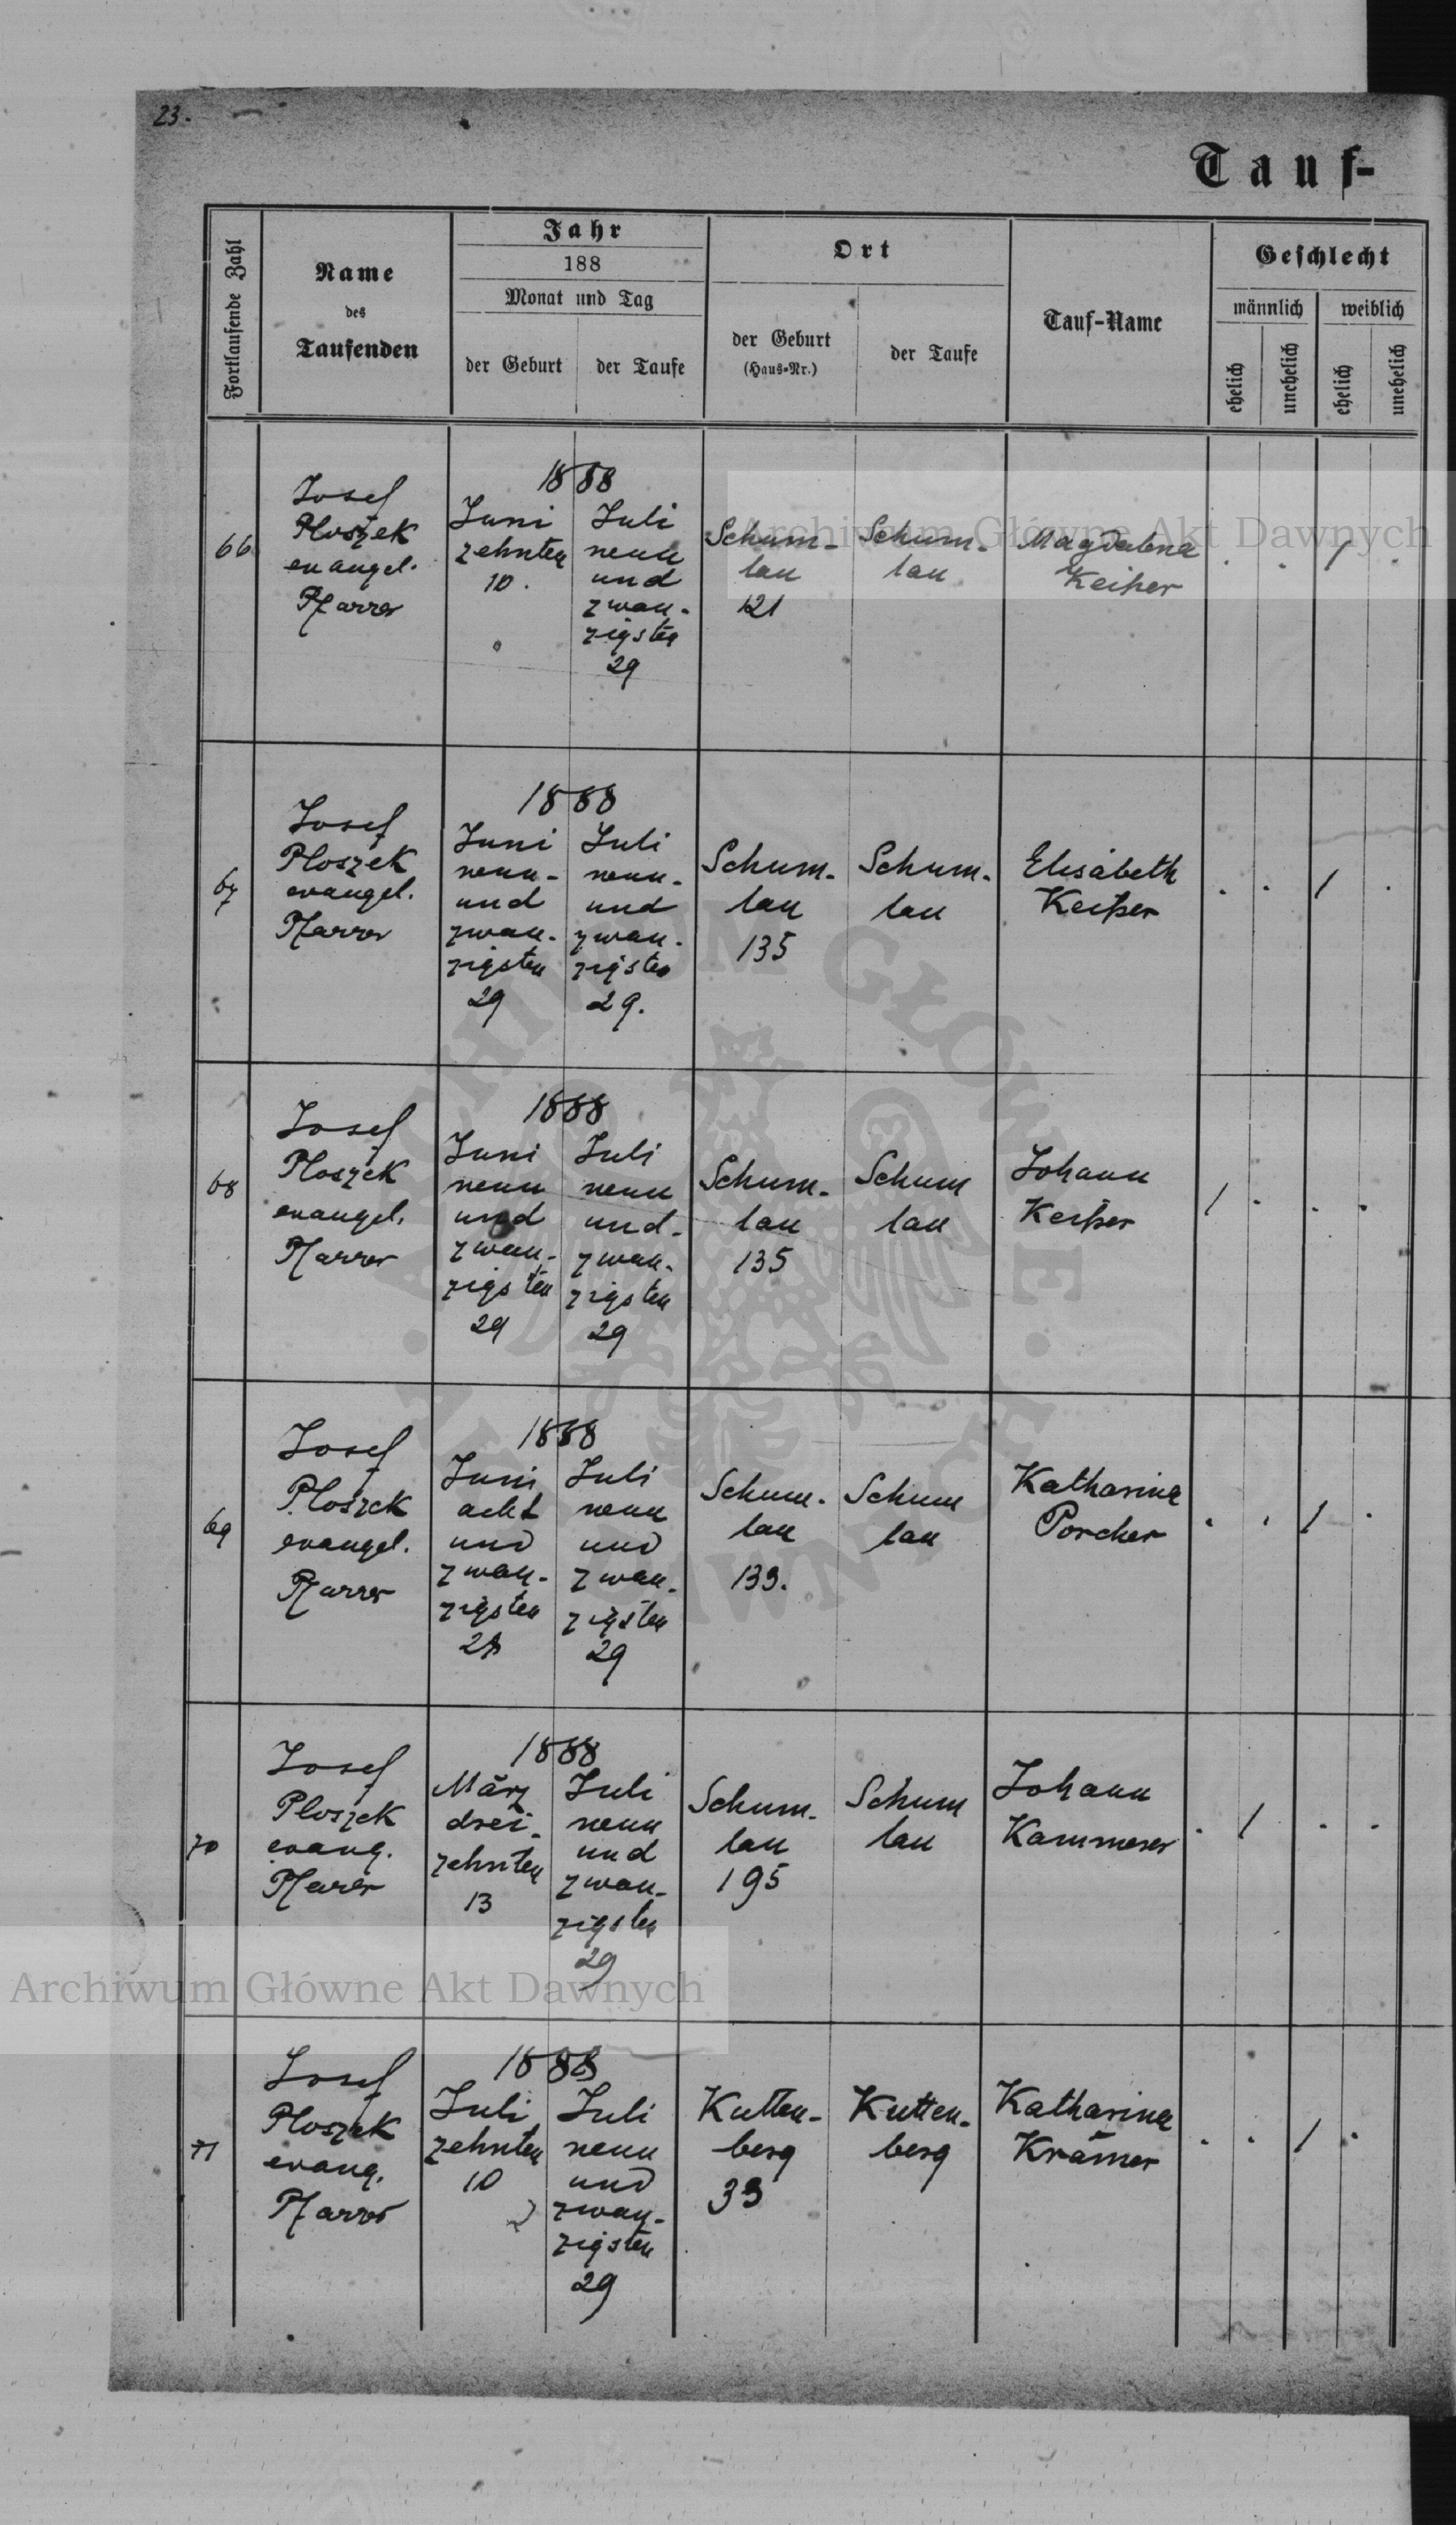 23.
Tauf-
Fortlaufende Zahl
Name
des
Taufenden
Jahr
188
Monat und Tag
der Geburt
der Taufe
Ort
der Geburt
(Haus-Nr.)
der Taufe
Tauf-Name
Geschlecht
männlich
weiblich
ehelich
unehelich
ehelich
unehelich
66
Josef
Ploszek
evangel.
Pfarrer
1888
Juni
zehnten
10.
Juli
neun
und
zwan-
zigsten
29
Schum-
lau
121
Schum-
lau
Magdalena
Keiper
1
67
Josef
Ploszek
evangel.
Pfarrer
1888
Juni
neun-
und
zwan-
zigsten
29
Juli
neun-
und
zwan-
zigsten
29.
Schum-
lau
135
Schum-
lau
Elisabeth
Keiper
1
68
Josef
Ploszek
evangel.
Pfarrer
1888
Juni
neun
und
zwan-
zigsten
29
Juli
neun
und-
zwan-
zigsten
29
Schum-
lau
135
Schum
lau
Johann
Keiper
1
69
Josef
Ploszek
evangel.
Pfarrer
1888
Juni
acht
und
zwan-
zigsten
28
Juli
neun
und
zwan-
zigsten
29
Schum-
lau
133.
Schum
lau
Katharina
Porcher
1
70
Josef
Ploszek
evang.
Pfarrer
1888
März
drei-
zehnten
13
Juli
neun
und
zwan-
zigsten
29
Schum-
lau
195
Schum
lau
Johann
Kammerer
1
71
Josef
Ploszek
evang.
Pfarrer
1888
Juli
zehnten
10
Juli
neun
und
zwan-
zigsten
29
Kutten-
berg
33
Kutten-
berg
Katharina
Krämer
1
Archiwum Główne Akt Dawnych
Archiwum Główne Akt Dawnych